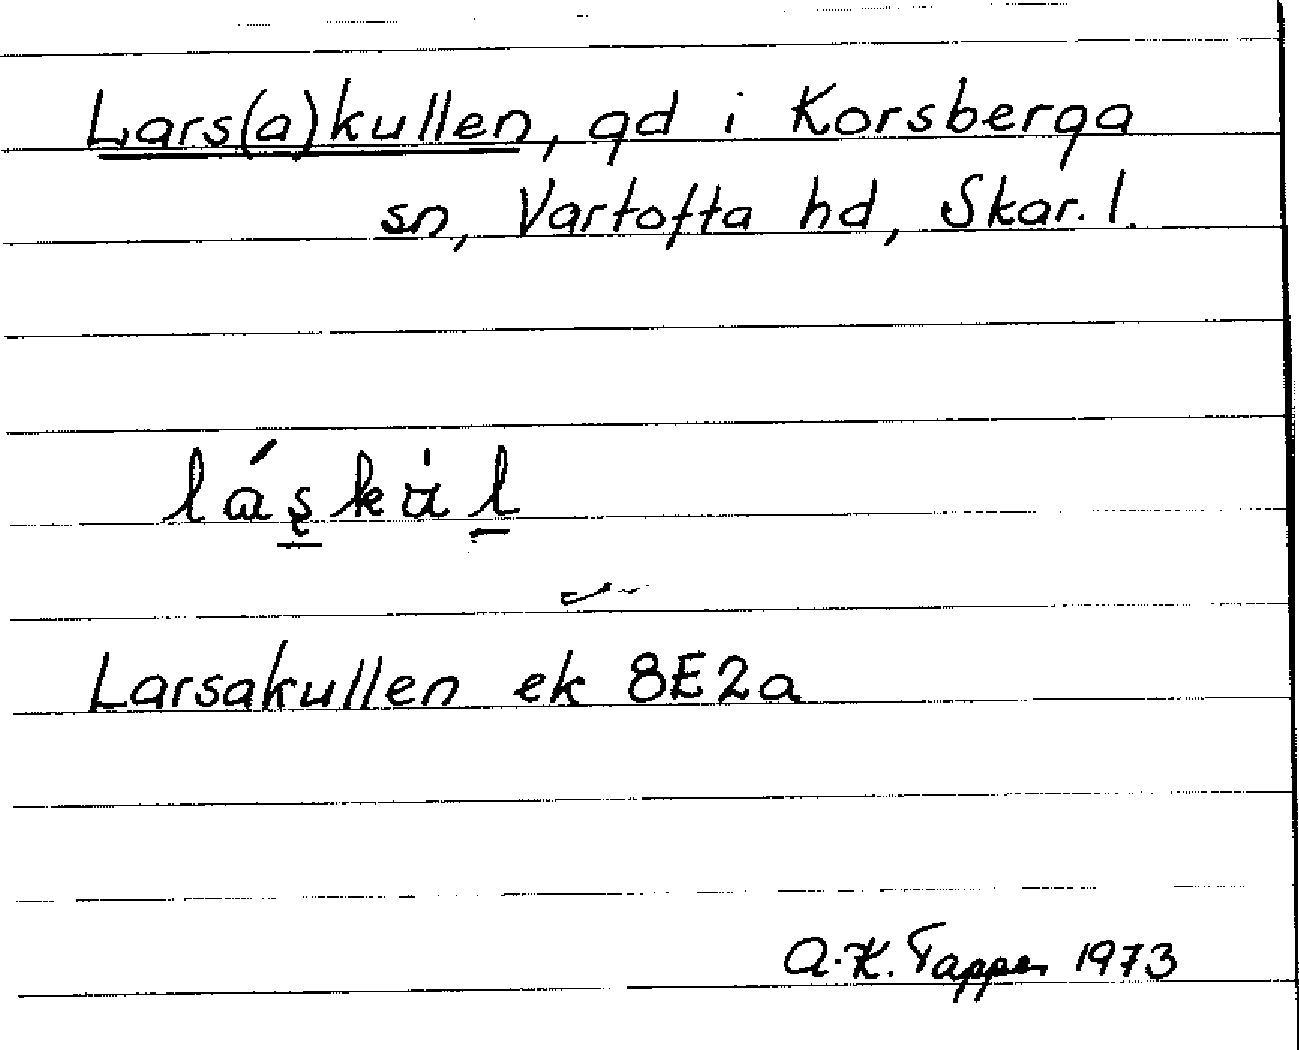 Lars(a)kullen, gd i Korsberga
sn, Vartofta hd, Skar. l.
láskul
Larsakullen ek 8E2a
A.K. Tapper 1973